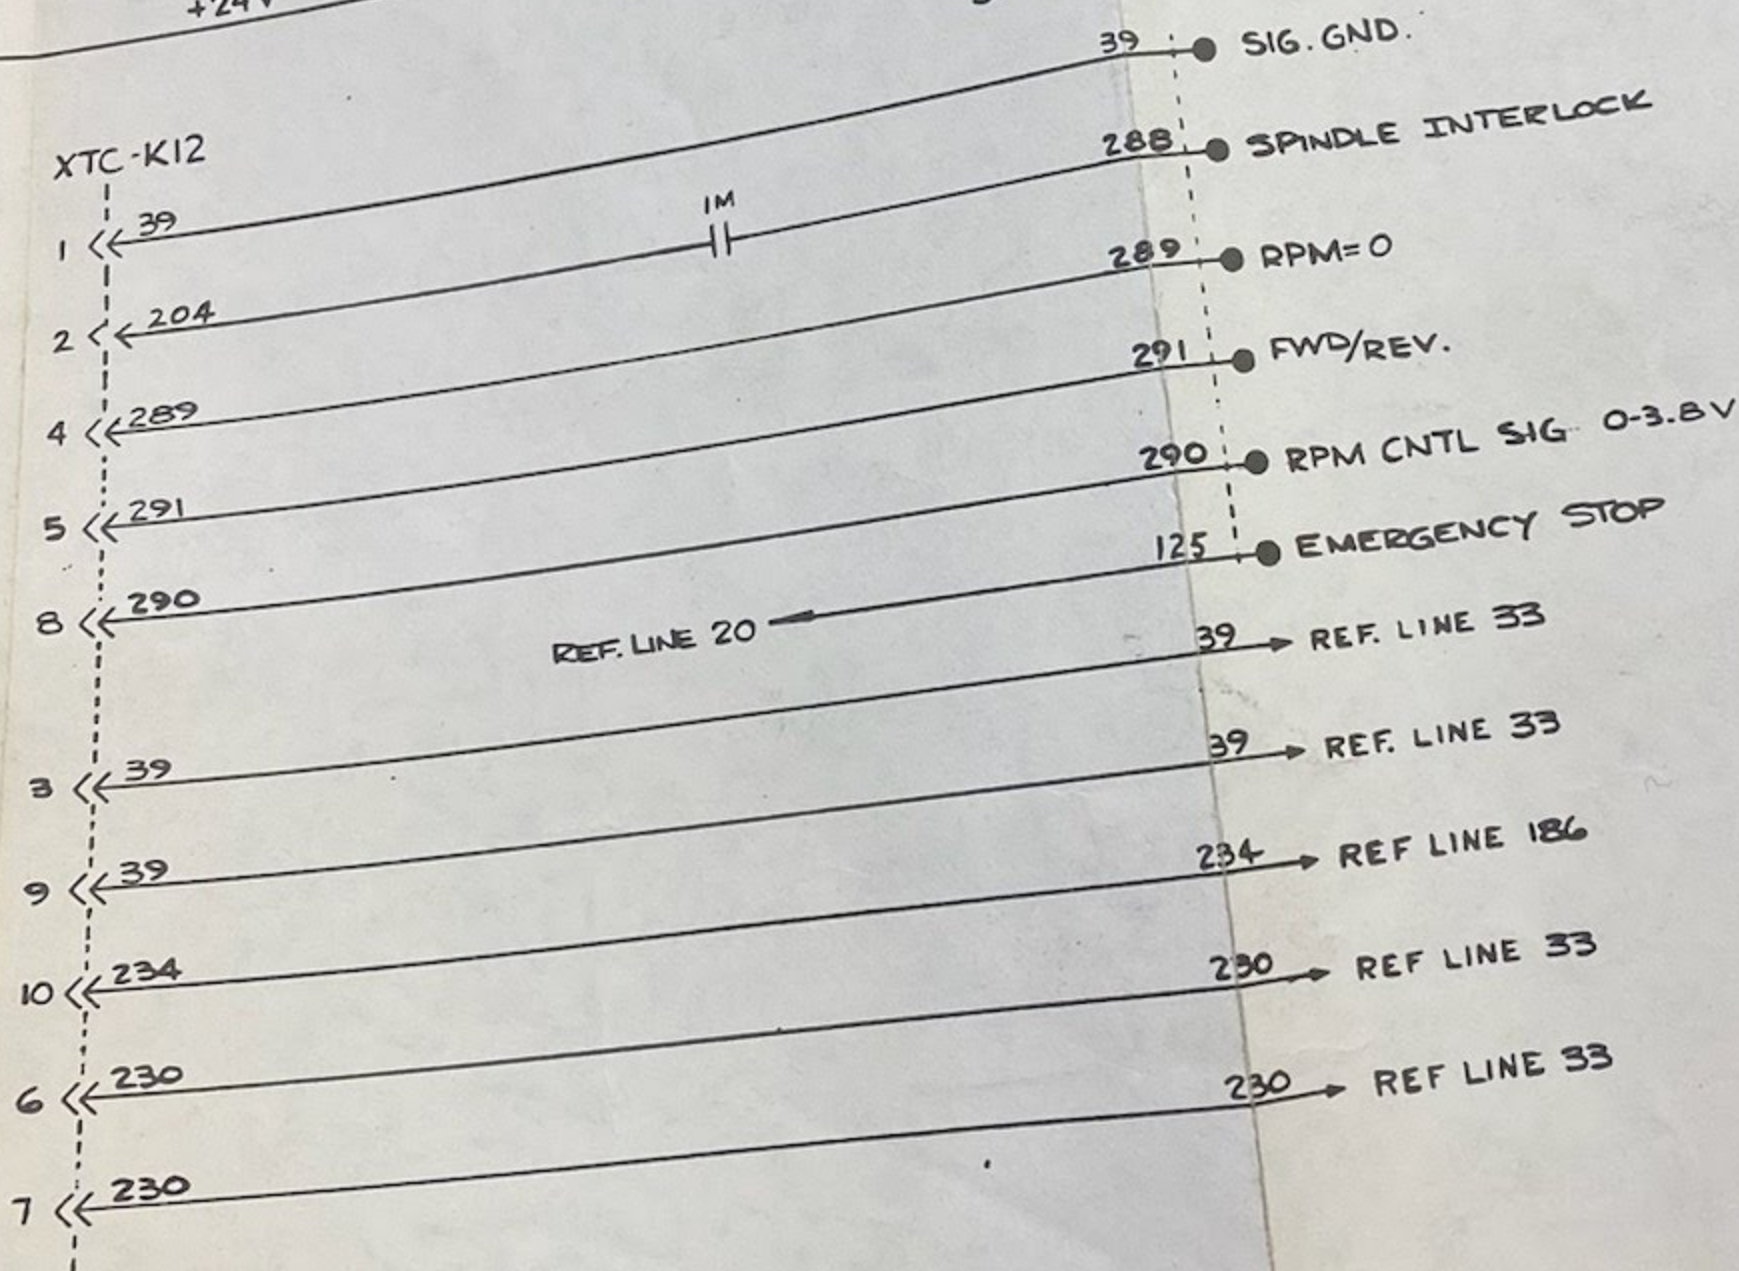 +24V
39 SIG. GND.
XTC-K12
1 39
1M
288 SPINDLE INTERLOCK
2 204
289 RPM=0
4 289
291 FWD/REV.
5 291
290 RPM CNTL SIG 0-3.8V
8 290
125 EMERGENCY STOP
REF. LINE 20
39 REF. LINE 33
3 39
39 REF. LINE 33
9 39
234 REF LINE 186
10 234
230 REF LINE 33
6 230
230 REF LINE 33
7 230